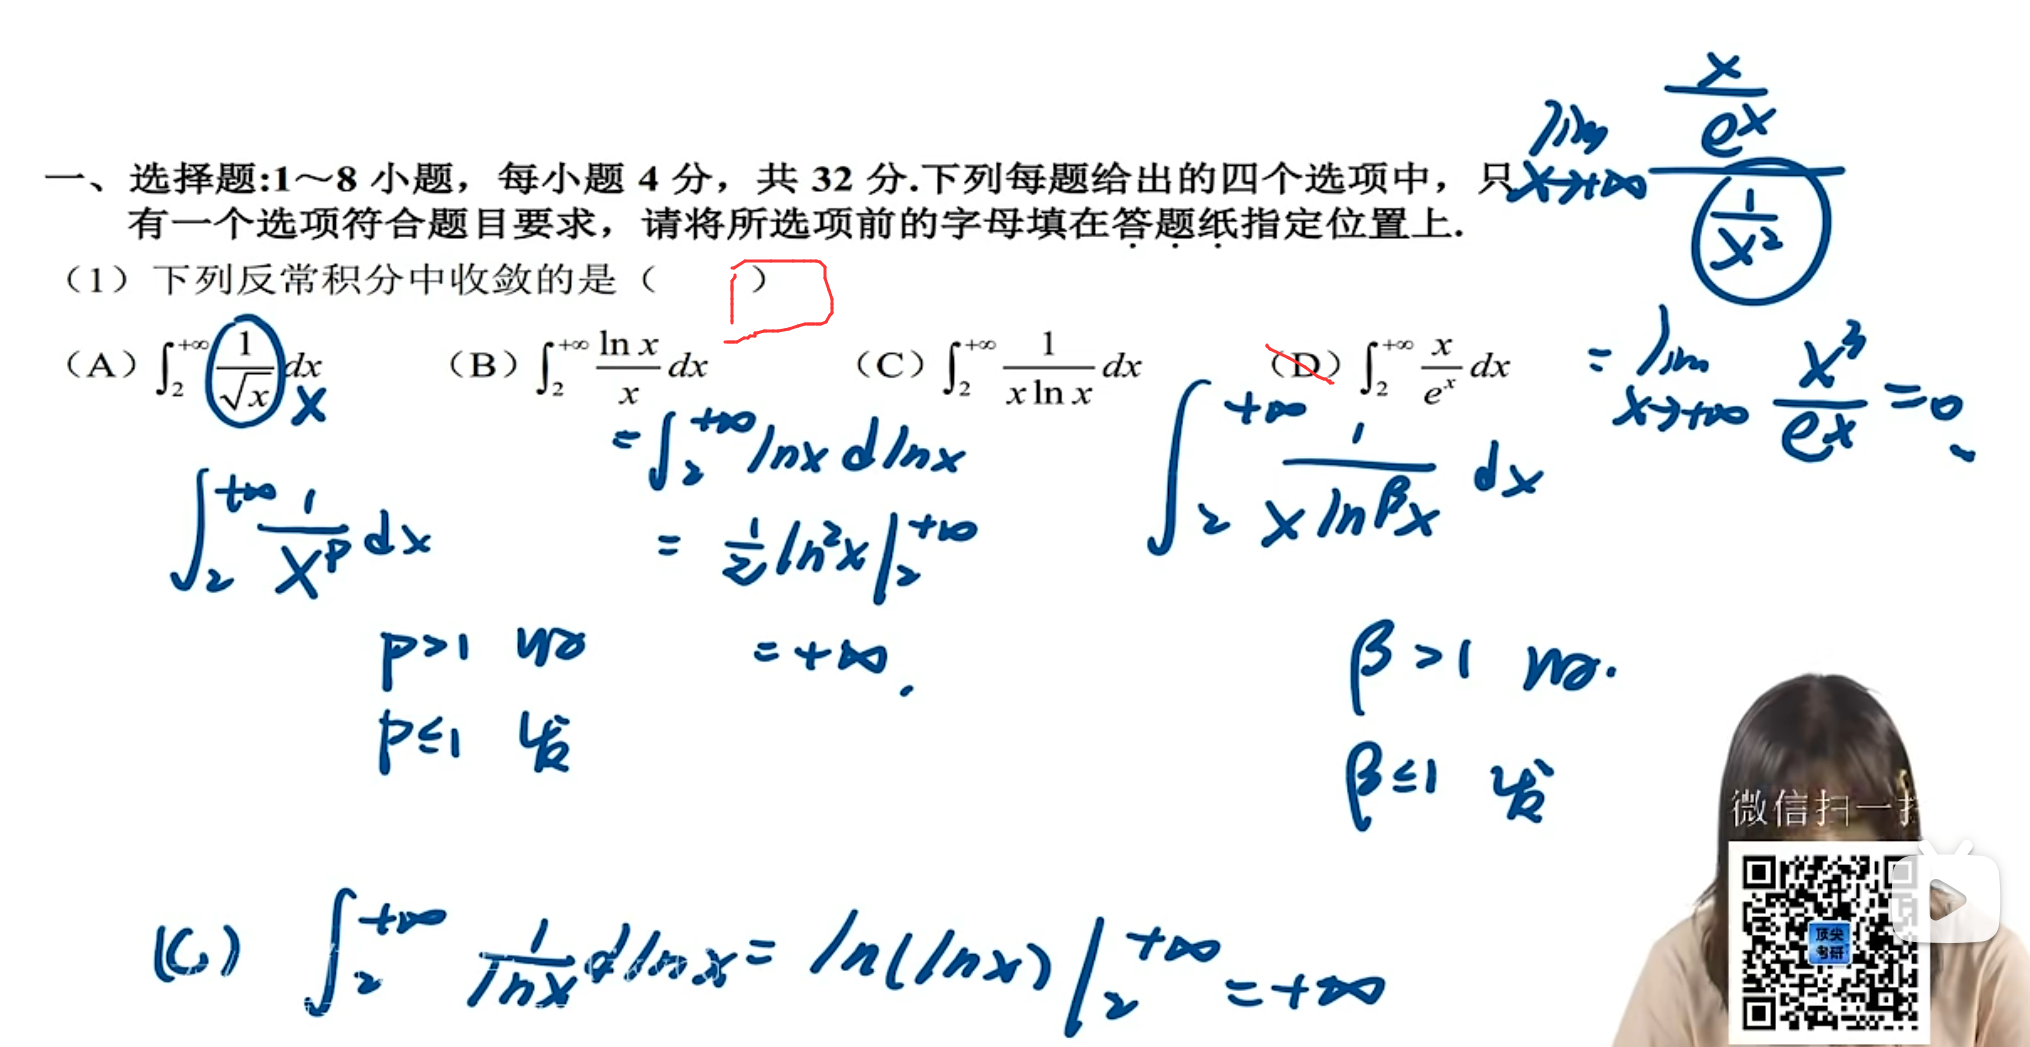 一、选择题:1～8 小题，每小题 4 分，共 32 分.下列每题给出的四个选项中，只
有一个选项符合题目要求，请将所选项前的字母填在答题纸指定位置上.
（1）下列反常积分中收敛的是（  ）
（A）∫₂^{+∞} 1/√x dx （B）∫₂^{+∞} ln x/x dx （C）∫₂^{+∞} 1/(x ln x) dx （D）∫₂^{+∞} x/eˣ dx
x
lim_{x→+∞} (x/eˣ)/(1/x²)
= lim_{x→+∞} x³/eˣ = 0
∫₂^{+∞} 1/x^p dx
p>1 收
p≤1 发
= ∫₂^{+∞} lnx dlnx
= 1/2 ln²x |₂^{+∞}
= +∞.
∫₂^{+∞} 1/(x ln^β x) dx
β>1 收.
β≤1 发
(C) ∫₂^{+∞} 1/lnx dlnx = ln(lnx) |₂^{+∞} = +∞
微信扫一扫
顶尖
考研